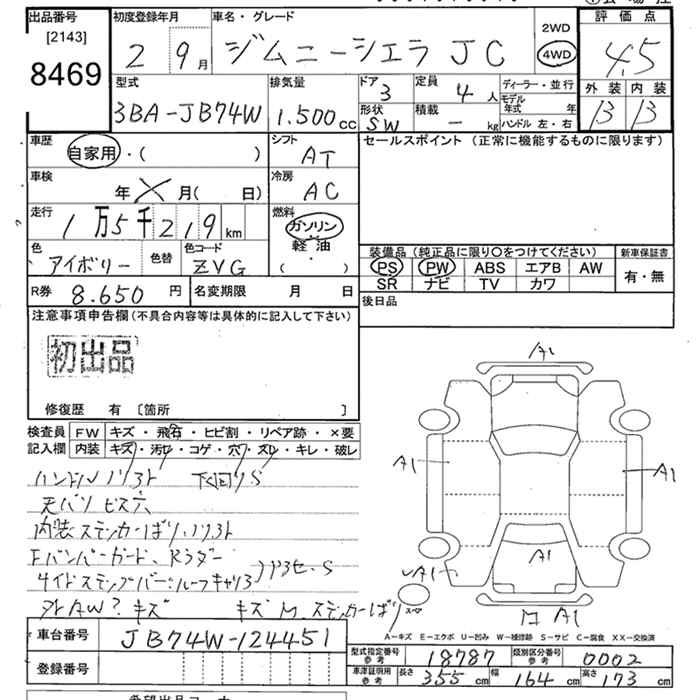 出品番号 初度登録年月 車名・グレード 2WD 評価点
[2143] 2 9月 ジムニーシエラ JC 4WD 4.5
8469
型式 排気量 ドア 定員 ディーラー・並行 外装 内装
3BA-JB74W 1.500cc 3 4人 モデル年式 年 B B
形状 積載 ハンドル 左・右
SW - kg
車歴 シフト セールスポイント (正常に機能するものに限ります)
自家用・( ) AT
車検 冷房
年 月( 日) AC
走行 燃料
1万5千219km ガソリン
軽油
( )
色 色替 色コード 装備品 (純正品に限り〇をつけてください) 新車保証書
アイボリー ZVG PS PW ABS エアB AW 有・無
SR ナビ TV カワ
R券 8.650円 名変期限 月 日 後日品
注意事項申告欄(不具合内容等は具体的に記入して下さい)
初出品
修復歴 有 [箇所 ]
検査員 FW キズ・飛石・ヒビ割・リペア跡・×要
記入欄 内装 キズ・汚レ・コゲ・穴・スレ・キレ・破レ
ハンドル
ビス穴
内装ステッカー
Fバンパーガード、
サイドステップバー
AW? キズ キズ
A1
A1
A1
A1
A1
A1
スペア
A-キズ E-エクボ U-凹み W-補修跡 S-サビ C-腐食 XX-交換済
車台番号 JB74W-124451
登録番号
型式指定番号 参考 18787 類別区分番号 参考 0002
車庫証明用 参考 長さ 355cm 幅 164cm 高さ 173cm